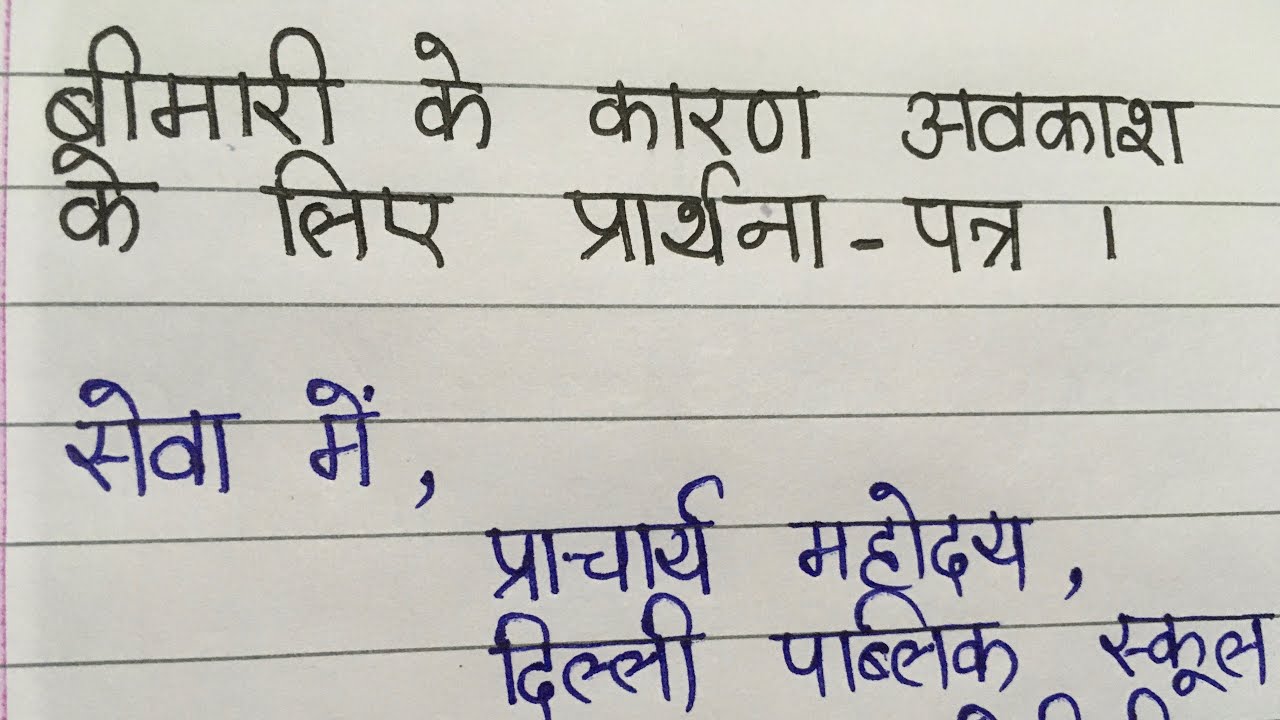 बीमारी के कारण अवकाश
के लिए प्रार्थना - पत्र ।
सेवा में ,
प्राचार्य महोदय ,
दिल्ली पब्लिक स्कूल